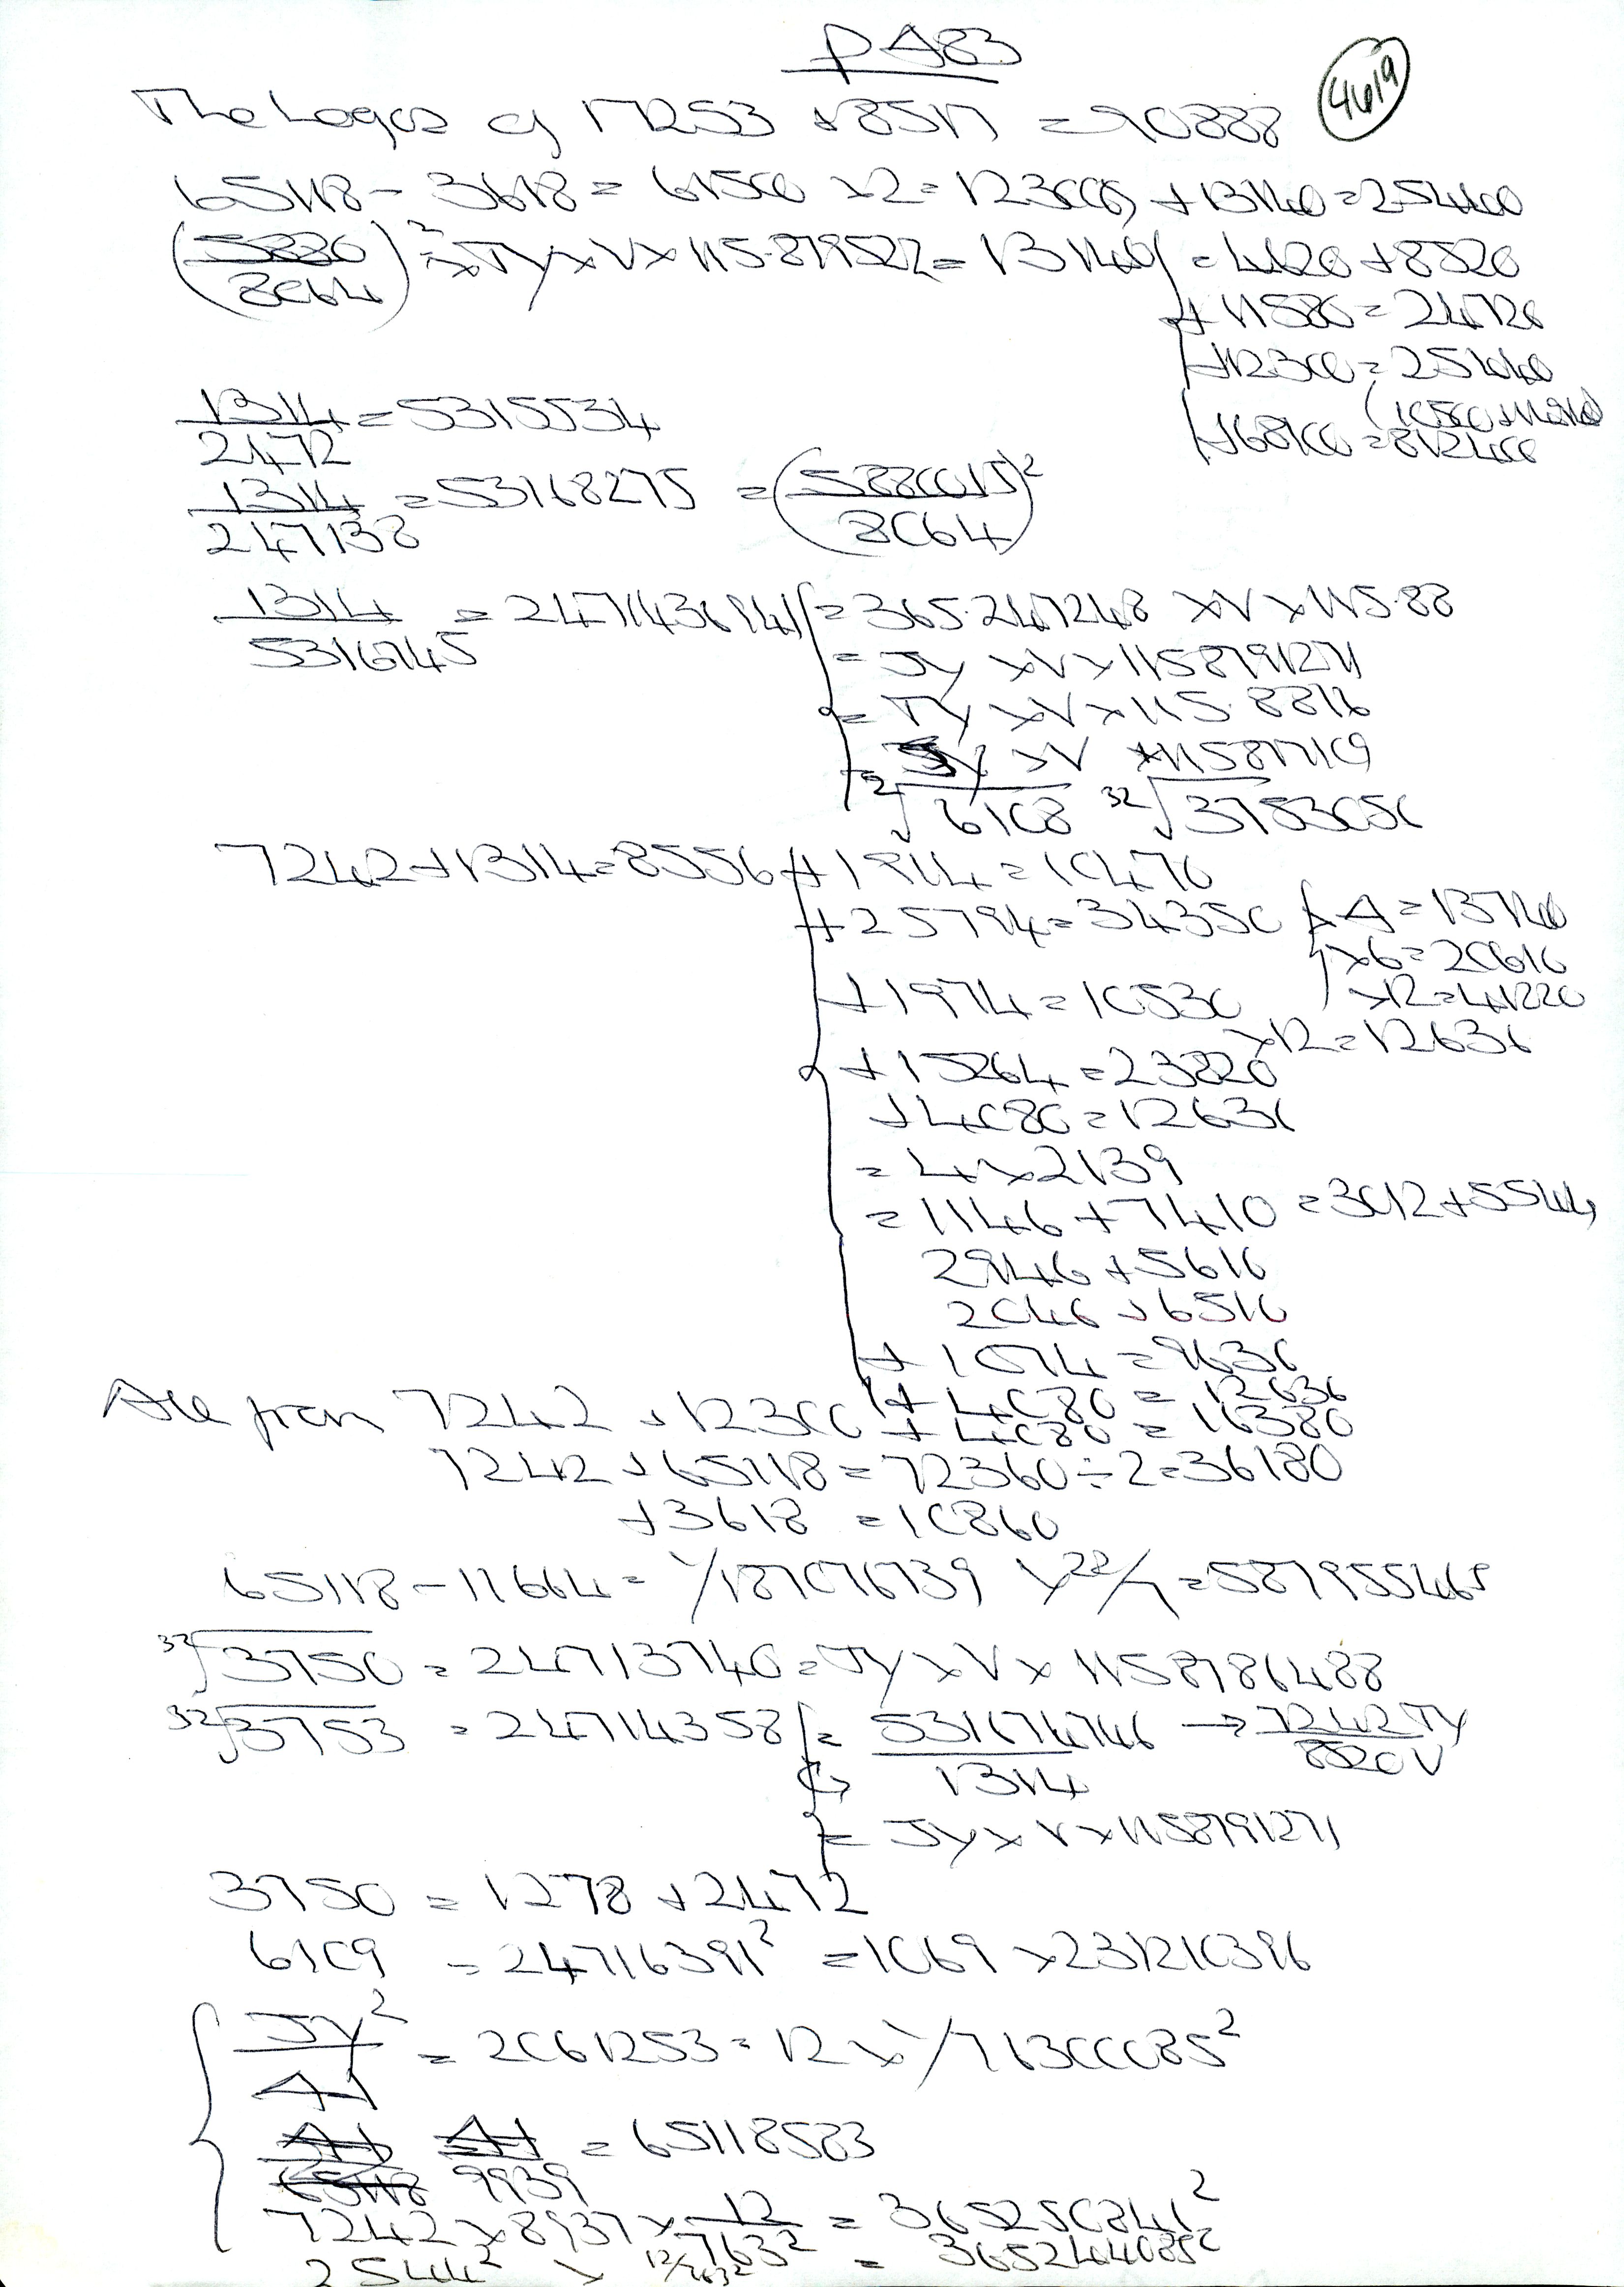 PA83
4619
The Logos of 17253 + 8517 = 90888
65118 - 3618 = 61500 x2 = 123000, + 13140 = 254400
(5880/8064)² = x TY x V x 115.879522 = 13140 = 4620 + 8520
+ 11580 = 24720
+ 12300 = 25440
+ 68100 = 812400
1314/2472 = 5315534
1314/247138 = 53168275 = (5880015/8064)²
1314/5316745 = 2471436941 = 365.247248 x V x 115.88
= JY x V x 1158791271
= TY x V x 115.8816
= x V x 11587710
²√6108 ³²√3753050
7242 + 1314 = 8556 + 1914 = 10470
+ 25794 = 34350 x A = 13740
x6 = 20610
+ 1974 = 10530 x12 = 41220
x12 = 12636
+ 15264 = 23820
+ 4080 = 12636
= 4 x 2139
= 1146 + 7410 = 3012 + 5544,
2946 + 5610
2046 + 6510
+ 1074 = 9630
+ 4080 = 12636
All from 7242 + 12300 + 4080 = 16380
7242 + 65118 = 72360 ÷ 2 = 36180
+ 3618 = 10860
65118 - 11664 = 1/187076739 x 22/7 = 587955465
³²√3750 = 24713740 = JY x V x 1158786488
³²√3753 = 24714358 = 531674746/1314 → 7242 TY/8520 V
= JY x V x 1158791271
3750 = 1278 + 2472
6109 = 24716391² = 1069 x 231210396
JY² = 2061253 = 12 x 1/76300085²
= 65118583
9939
7242 x 8937 x 12/763² = 365250841²
2544² x 12/763² = 365244085²